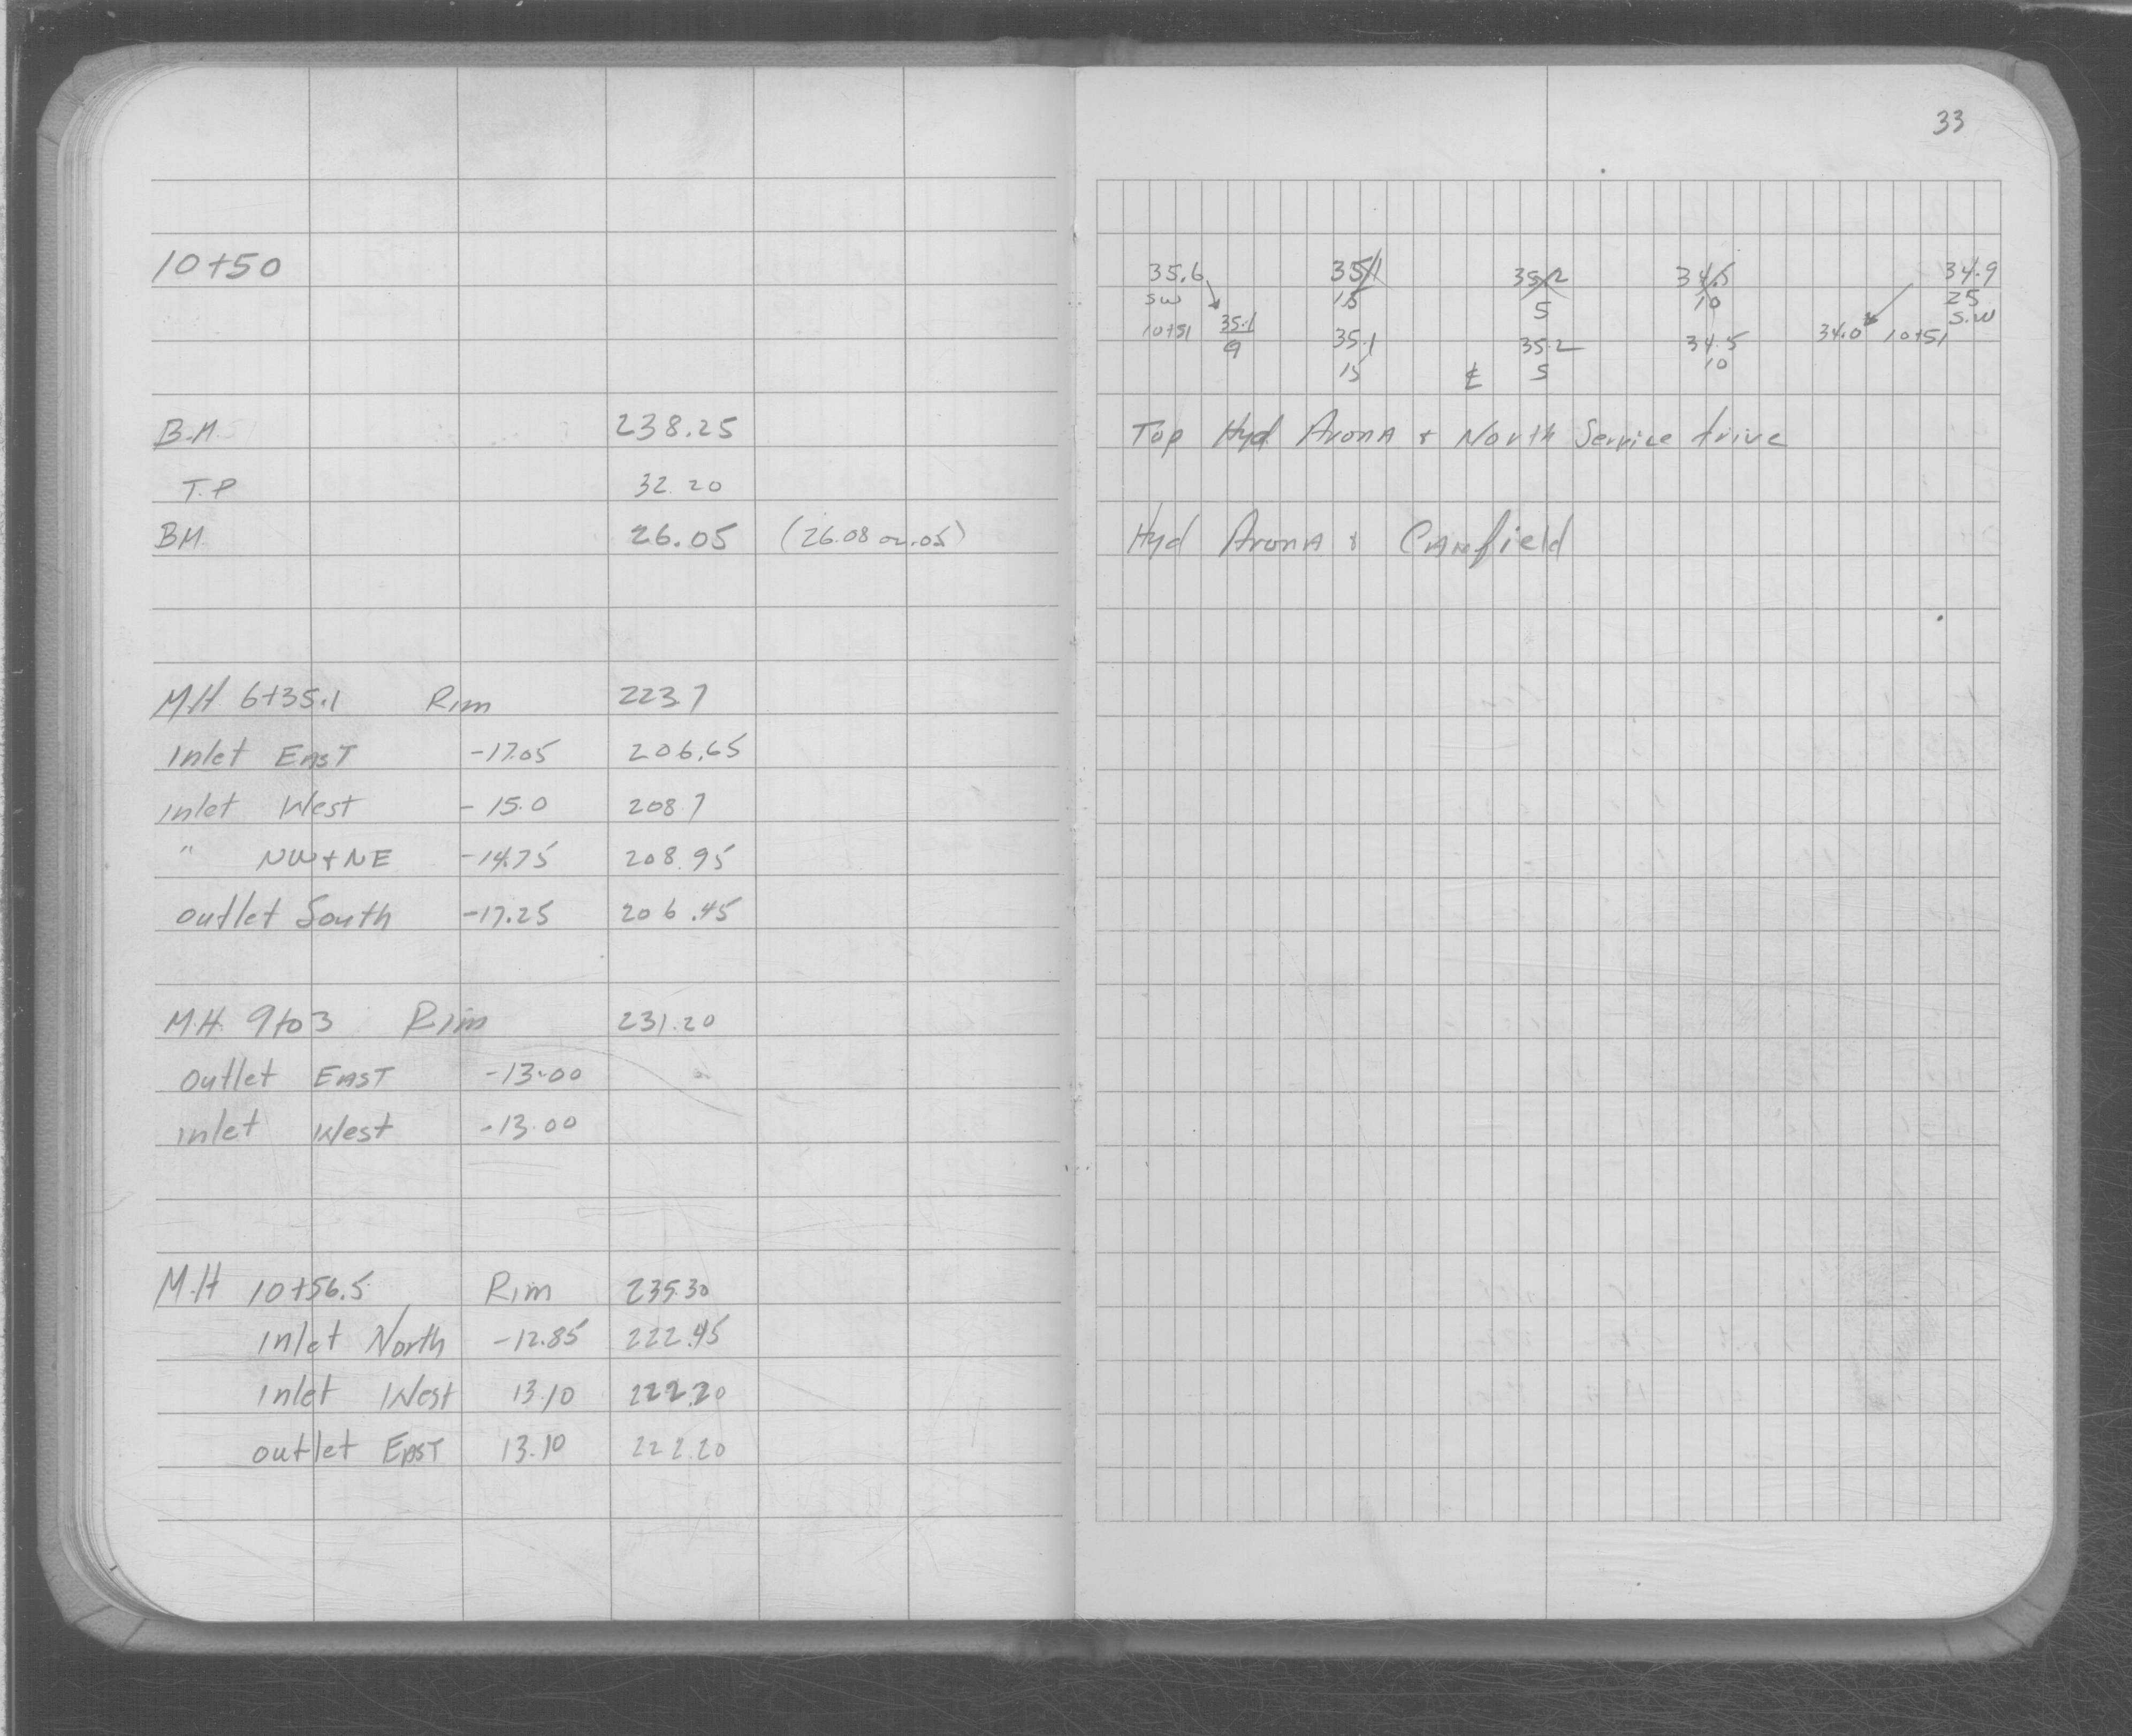 33
10+50
35.6 35.1 35.2 34.5 34.9
sw 15 5 10 25
10+51 35.1 35.1 35.2 34.5 34.0 10+51 S.W
9 15 ℄ 5 10
B.M. 238.25 Top Hyd Arona + North Service drive
T.P 32.20
BM. 26.05 (26.08 on.05) Hyd Arona + Canfield
M.H. 6+35.1 Rim 223.7
Inlet East -17.05 206.65
inlet West - 15.0 208.7
" NW+NE -14.75 208.95
outlet South -17.25 206.45
M.H. 9+03 Rim 231.20
Outlet East -13.00
inlet West -13.00
M.H 10+56.5 Rim 235.30
Inlet North -12.85 222.45
Inlet West 13.10 222.20
outlet East 13.10 222.20